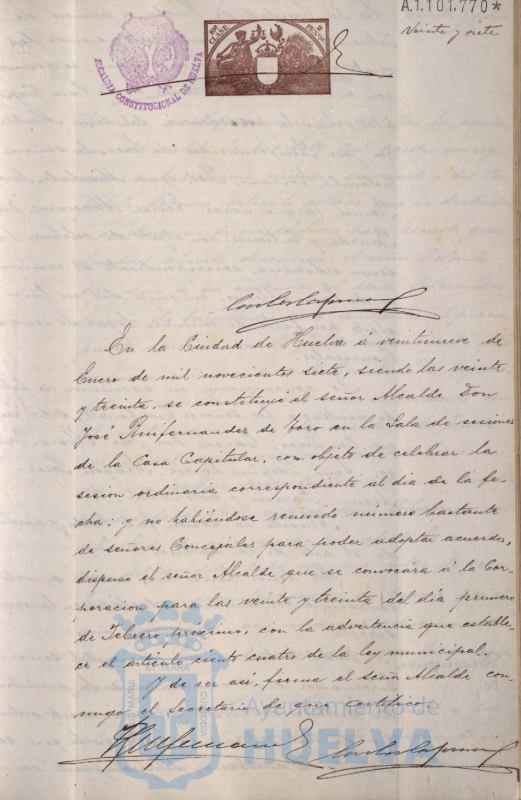 A.1.101.770*
Veinte y siete
10ª CLASE
2 PESETAS
ALCALDIA CONSTITUCIONAL DE HUELVA
En la Ciudad de Huelva á veintinueve de
Enero de mil novecientos siete, siendo las veinte
y treinta, se constituyó el señor Alcalde Don
José Ruifernandez de Toro en la Sala de sesiones
de la Casa Capitular, con objeto de celebrar la
sesion ordinaria correspondiente al dia de la fe-
cha; y no habiéndose reunido número bastante
de señores Concejales para poder adoptar acuerdos,
dispuso el señor Alcalde que se convocára á la Cor-
poracion para las veinte y treinta del día primero
de Febrero próximo, con la advertencia que estable-
ce el artículo ciento cuatro de la ley municipal.
Y de ser así, firma el señor Alcalde con-
migo el Secretario de que certifico.
Ayuntamiento de
HUELVA